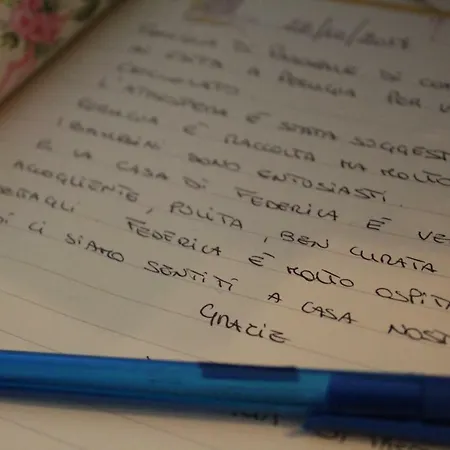 FAMIGLIA DI
IN GITA A PERUGIA PER
CIOCCOLATO
L'ATMOSFERA È STATA SUGGEST
PERUGIA È RACCOLTA MA MOLTO
I BAMBINI SONO ENTUSIASTI.
E LA CASA DI FEDERICA È VE
ACCOGLIENTE, PULITA, BEN CURATA
FEDERICA È MOLTO OSPITA
CI SIAMO SENTITI A CASA NOST
GRAZIE